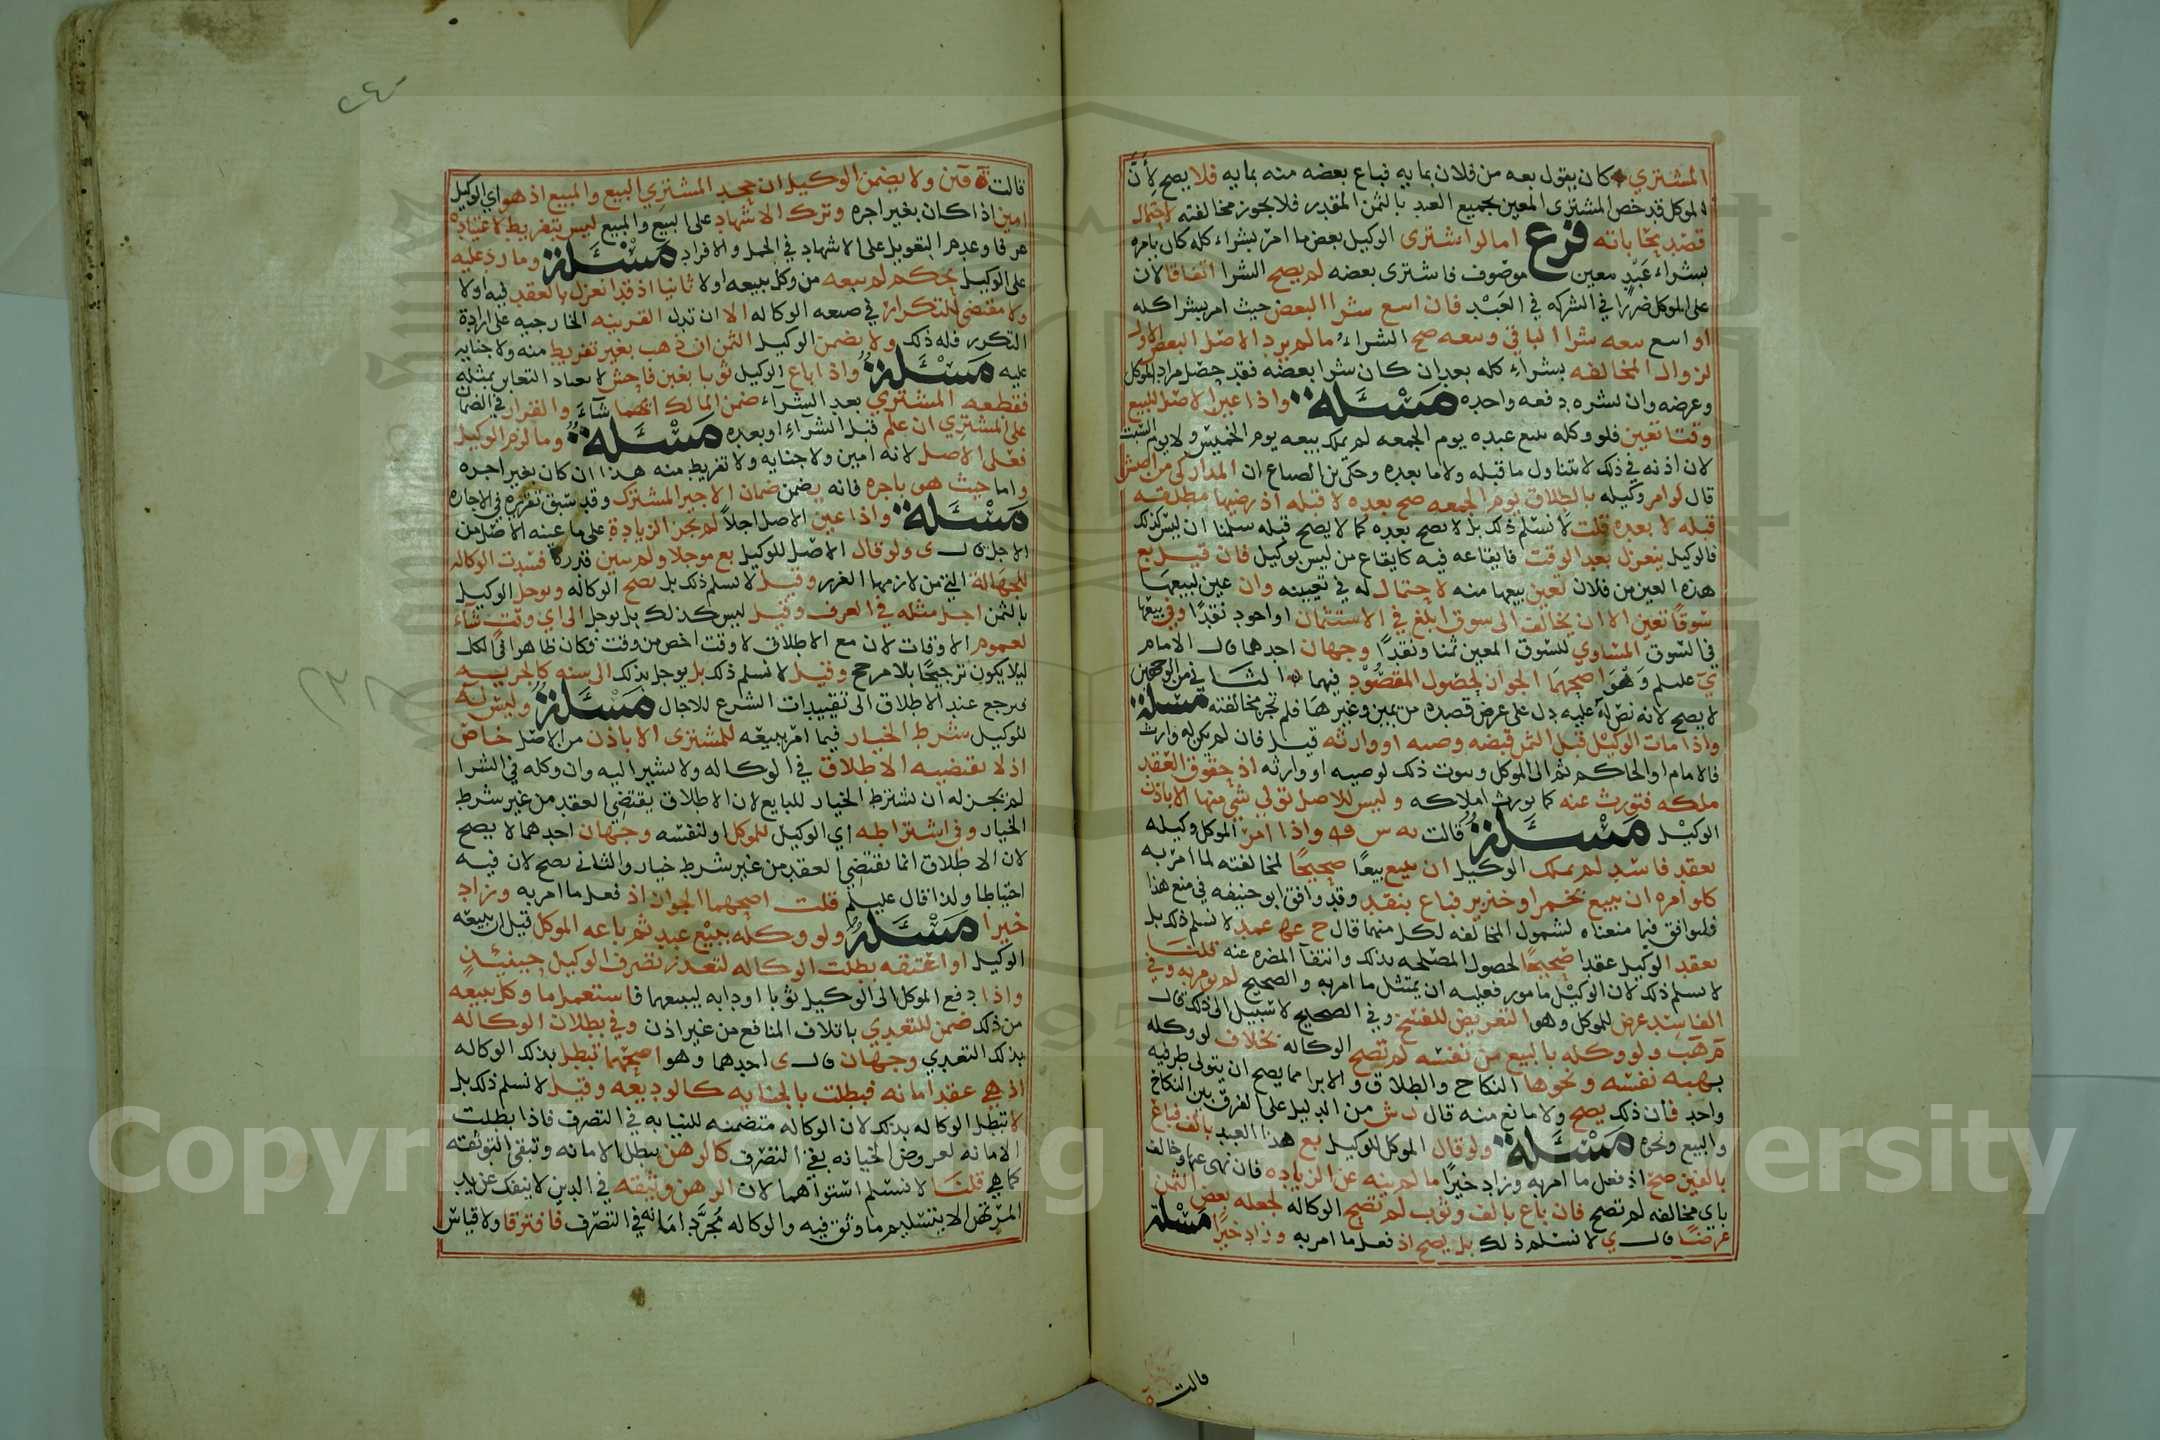 المشتري كان يقول بعه من فلان بمايه فباع بعضه منه بمايه فلا يصح لأن
الموكل قد خص المشتري المعين بجميع العبد بالثمن المقدر فلا يجوز مخالفته لاحتمال
قصد محاباته فرع اما لو اشترى الوكيل بعض ما امر بشراء كله كان يامره
بشراء عبد معين موصوف فاشترى بعضه لم يصح الشرا اتفاقا لان
على الموكل ضررا في الشركه في العبد فان اسع شرا البعض حيث امر بشرا كله
او اسع معه شرا الباقي وسعه صح الشراء ما لم يرد الاصل البعض الاول
لزوال المخالفه بشراء كله بعد ان كان شرا بعضه فقد حصل مراد الموكل
وغرضه وان لم يشره دفعه واحده مسئلة واذا عين الاصل للبيع
وقتا تعين فلو وكله ببيع عبده يوم الجمعه لم يملك بيعه يوم الخميس ولا يوم السبت
لان اذنه في ذلك لا يتناول ما قبله ولا ما بعده وحكى بن الصباغ ان الداركي من اصش
قال لو امر وكيله بالطلاق يوم الجمعه صح بعده لا قبله اذ رضيها مطلقه
قبله لا بعده قلت لا نسلم ذلك بل لا تصح بعده كما لا يصح قبله سلمنا ان ليس كذلك
فالوكيل ينعزل بعد الوقت فايقاعه فيه كايقاع من ليس بوكيل فان قيل بع
هذه العين من فلان تعين بيعها منه لاحتمال له في تعيينه وان عين لبيعها
سوقا تعين الا ان يخالف الى سوق ابلغ في الاستثمان او اجود نقدا وفي بيعها
في السوق المساوي للسوق المعين ثمنا ونقدا وجهان احدهما قال الامام
ي عليلم وهو اصحهما الجواز لحصول المقصود فيهما الثاني من الوجهين
لا يصح لانه نص له عليه دل على غرض قصده من يمين وغيرها فلم تجز مخالفته مسئلة
واذا مات الوكيل قبل الثمن قبضه وصيه او وارثه قيل فان لم يكن له وارث
فالامام او الحاكم ثم الى الموكل وثبوت ذلك لوصيه او وارثه اذ حقوق العقد
ملكه فتورث عنه كما يورث املاكه وليس للاصل تولي شي منها الا باذن
الوكيل مسئلة قالت به س وه واذا امر الموكل وكيله
بعقد فاسد لم يملك الوكيل ان يبيع بيعا صحيحا لمخالفته لما امر به
كلو امره ان يبيع بخمر او خنزير فباع بنقد وقد وافق ابو حنيفه في منع هذا
فليوافق فيما منعناه لشمول المخالفه لكل منهما قال ح عه عمد لا نسلم ذلك بل
يعقد الوكيل عقدا صحيحا لحصول المصلحه بذلك وانتفا المضره عنه قلنا
لا نسلم ذلك لان الوكيل مامور فعليه ان يمتثل ما امر به والصحيح لم يومر به وفي
الفاسد غرض للموكل وهو التعريض للفسخ وفي الصحيح لا سبيل الى ذلك قال
مرهب ولو وكله بالبيع من نفسه لم تصح الوكاله بخلاف لو وكله
بهبه نفسه ونحوها النكاح والطلاق والابرا مما يصح ان يتولى طرفيه
واحد فان ذلك يصح ولا مانع منه قال دش من الدليل على الفرق بين النكاح
والبيع ونحوه مسئلة ولو قال الموكل للوكيل بع هذا العبد بالف فباع
بالفين صح اذ فعل ما امر به وزاد خيرا ما لم ينه عن الزياده فان نهي عنها وخالف
باي مخالفه لم تصح فان باع بالف وثوب لم تصح الوكاله لجعله بعض الثمن
عرضا قال ي لا نسلم ذلك بل يصح اذ فعل ما امر به وزاد خيرا مسئلة
قالت ه
٢٤٠
قالت ه فين ولا يضمن الوكيل ان جحد المشتري البيع والمبيع اذ هو اي الوكيل
امين اذا كان بغير اجره وترك الاشهاد على البيع والمبيع ليس بتفريط لاعتياد
عرفا وعدم التعويل على الاشهاد في الجمل والافراد مسئلة وما رد عليه
على الوكيل بحكم لم يبعه من وكل ببيعه اولا ثانيا اذ قد انعزل بالعقد فيه اولا
ولا مقتضى للتكرار في صيغه الوكاله الا ان تدل القرينه الخارجيه على ارادة
التكرر فله ذلك ولا يضمن الوكيل الثمن ان ذهب بغير تفريط منه ولا جنايه
عليه مسئلة واذا باع الوكيل ثوبا بغبن فاحش لا يعتاد التغابن بمثله
فقطعه المشتري بعد الشراء ضمن المالك ايهما شاء والقرار في الضمان
على المشتري ان علم قبل الشراء او بعده مسئلة وما لزم الوكيل
فعلى الاصل لانه امين ولا جنايه ولا تفريط منه هذا ان كان بغير اجره
واما حيث هو باجره فانه يضمن ضمان الاجير المشترك وقد سبق تقريره في الاجاره
مسئلة واذا عين الاصل اجلا لم تجز الزيادة على ما عينه الاصل من
الاجل قال ى ولو قال الاصل للوكيل بع موجلا ولم يبين قدره فسدت الوكاله
للجهالة التي من لازمها الغرر وقيل لا نسلم ذلك بل تصح الوكاله ويوجل الوكيل
بالثمن اجل مثله في العرف وقيل ليس كذلك بل يوجل الى اي وقت شاء
لعموم الاوقات لان مع الاطلاق لا وقت اخص من وقت فكان ظاهرا في الكل
ليلا يكون ترجيحا بلا مرجح وقيل لا نسلم ذلك بل يوجل بذلك الى سنه كالجزيه
فيرجع عند الاطلاق الى تقييدات الشرع للاجال مسئلة وليس له
للوكيل شرط الخيار فيما امر ببيعه للمشتري الا باذن من الاصل خاص
اذ لا يقتضيه الاطلاق في الوكاله ولا يشير اليه وان وكله في الشرا
لم يجز له ان يشترط الخيار للبايع لان الاطلاق يقتضي العقد من غير شرط
الخيار وفي اشتراطه اي الوكيل للموكل او لنفسه وجهان احدهما لا يصح
لان الاطلاق انما يقتضي العقد من غير شرط خيار والثاني يصح لان فيه
احتياطا ولذا قال عليلم قلت اصحهما الجواز اذ فعل ما امر به وزاد
خيرا مسئلة ولو وكله ببيع عبد ثم باعه الموكل قبل ان يبيعه
الوكيل او اعتقه بطلت الوكاله لتعذر تصرف الوكيل حينئذ
واذا دفع الموكل الى الوكيل ثوبا او دابه ليبيعها فاستعمل ما وكل ببيعه
من ذلك ضمن للتعدي باتلاف المنافع من غير اذن وفي بطلان الوكاله
بذلك التعدي وجهان قال ى احدهما وهو اصحهما تبطل بذلك الوكاله
اذ هي عقد امانه فبطلت بالجنايه كالوديعه وقيل لا نسلم ذلك بل
لا تبطل الوكاله بذلك لان الوكاله متضمنه للنيابه في التصرف فاذا بطلت
الامانه لعروض الخيانه بقي التصرف كالرهن يبطل الامانه وتبقى التوثقته
كما هي قلنا لا نسلم استواهما لان الرهن وثيقه في الدين لا ينفك عن يد
المرتهن الا بتسليم ما وثق فيه والوكاله مجرد امانه في التصرف فافترقا ولا قياس